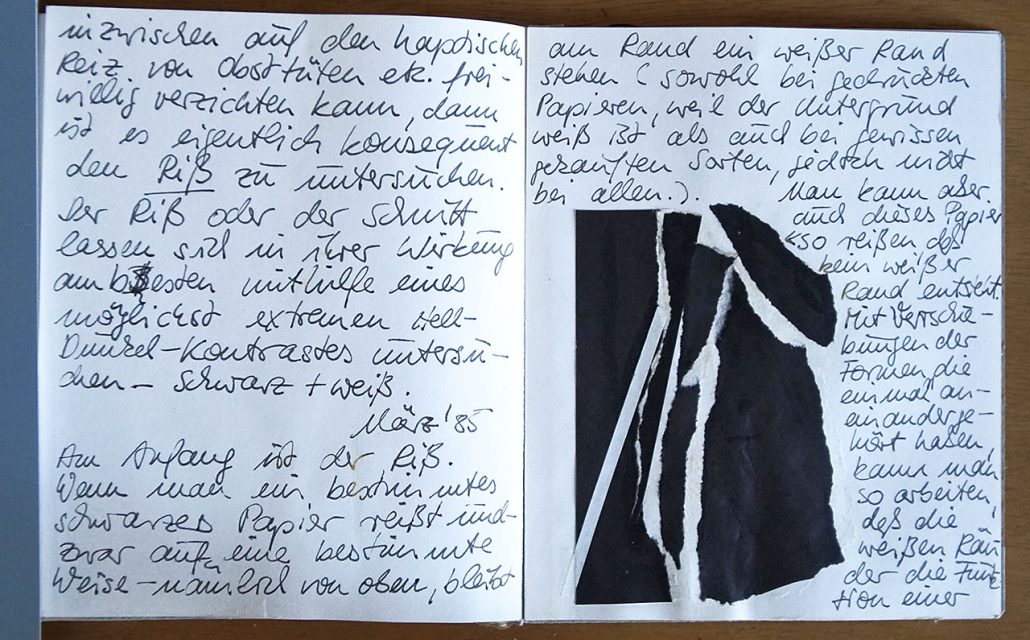 inzwischen auf den haptischen
Reiz von Obsttüten etc. frei-
willig verzichten kann, dann
ist es eigentlich konsequent
den Riß zu untersuchen.
Der Riß oder der Schnitt
lassen sich in ihrer Wirkung
am besten mithilfe eines
möglichst extremen Hell-
Dunkel-Kontrastes untersu-
chen - schwarz + weiß.
März '85
Am Anfang ist der Riß.
Wenn man ein bestimmtes
schwarzes Papier reißt und
zwar auf eine bestimmte
Weise - nämlich von oben, bleibt
am Rand ein weißer Rand
stehen (sowohl bei gedruckten
Papieren, weil der Untergrund
weiß ist als auch bei gewissen
gekauften Sorten, jedoch nicht
bei allen.).
Man kann aber
auch dieses Papier
so reißen daß
kein weißer
Rand entsteht.
Mit Verschie-
bungen der
Formen, die
einmal an-
einanderge-
hört haben,
kann man
so arbeiten,
daß die
weißen Rän
der die Funk
tion einer